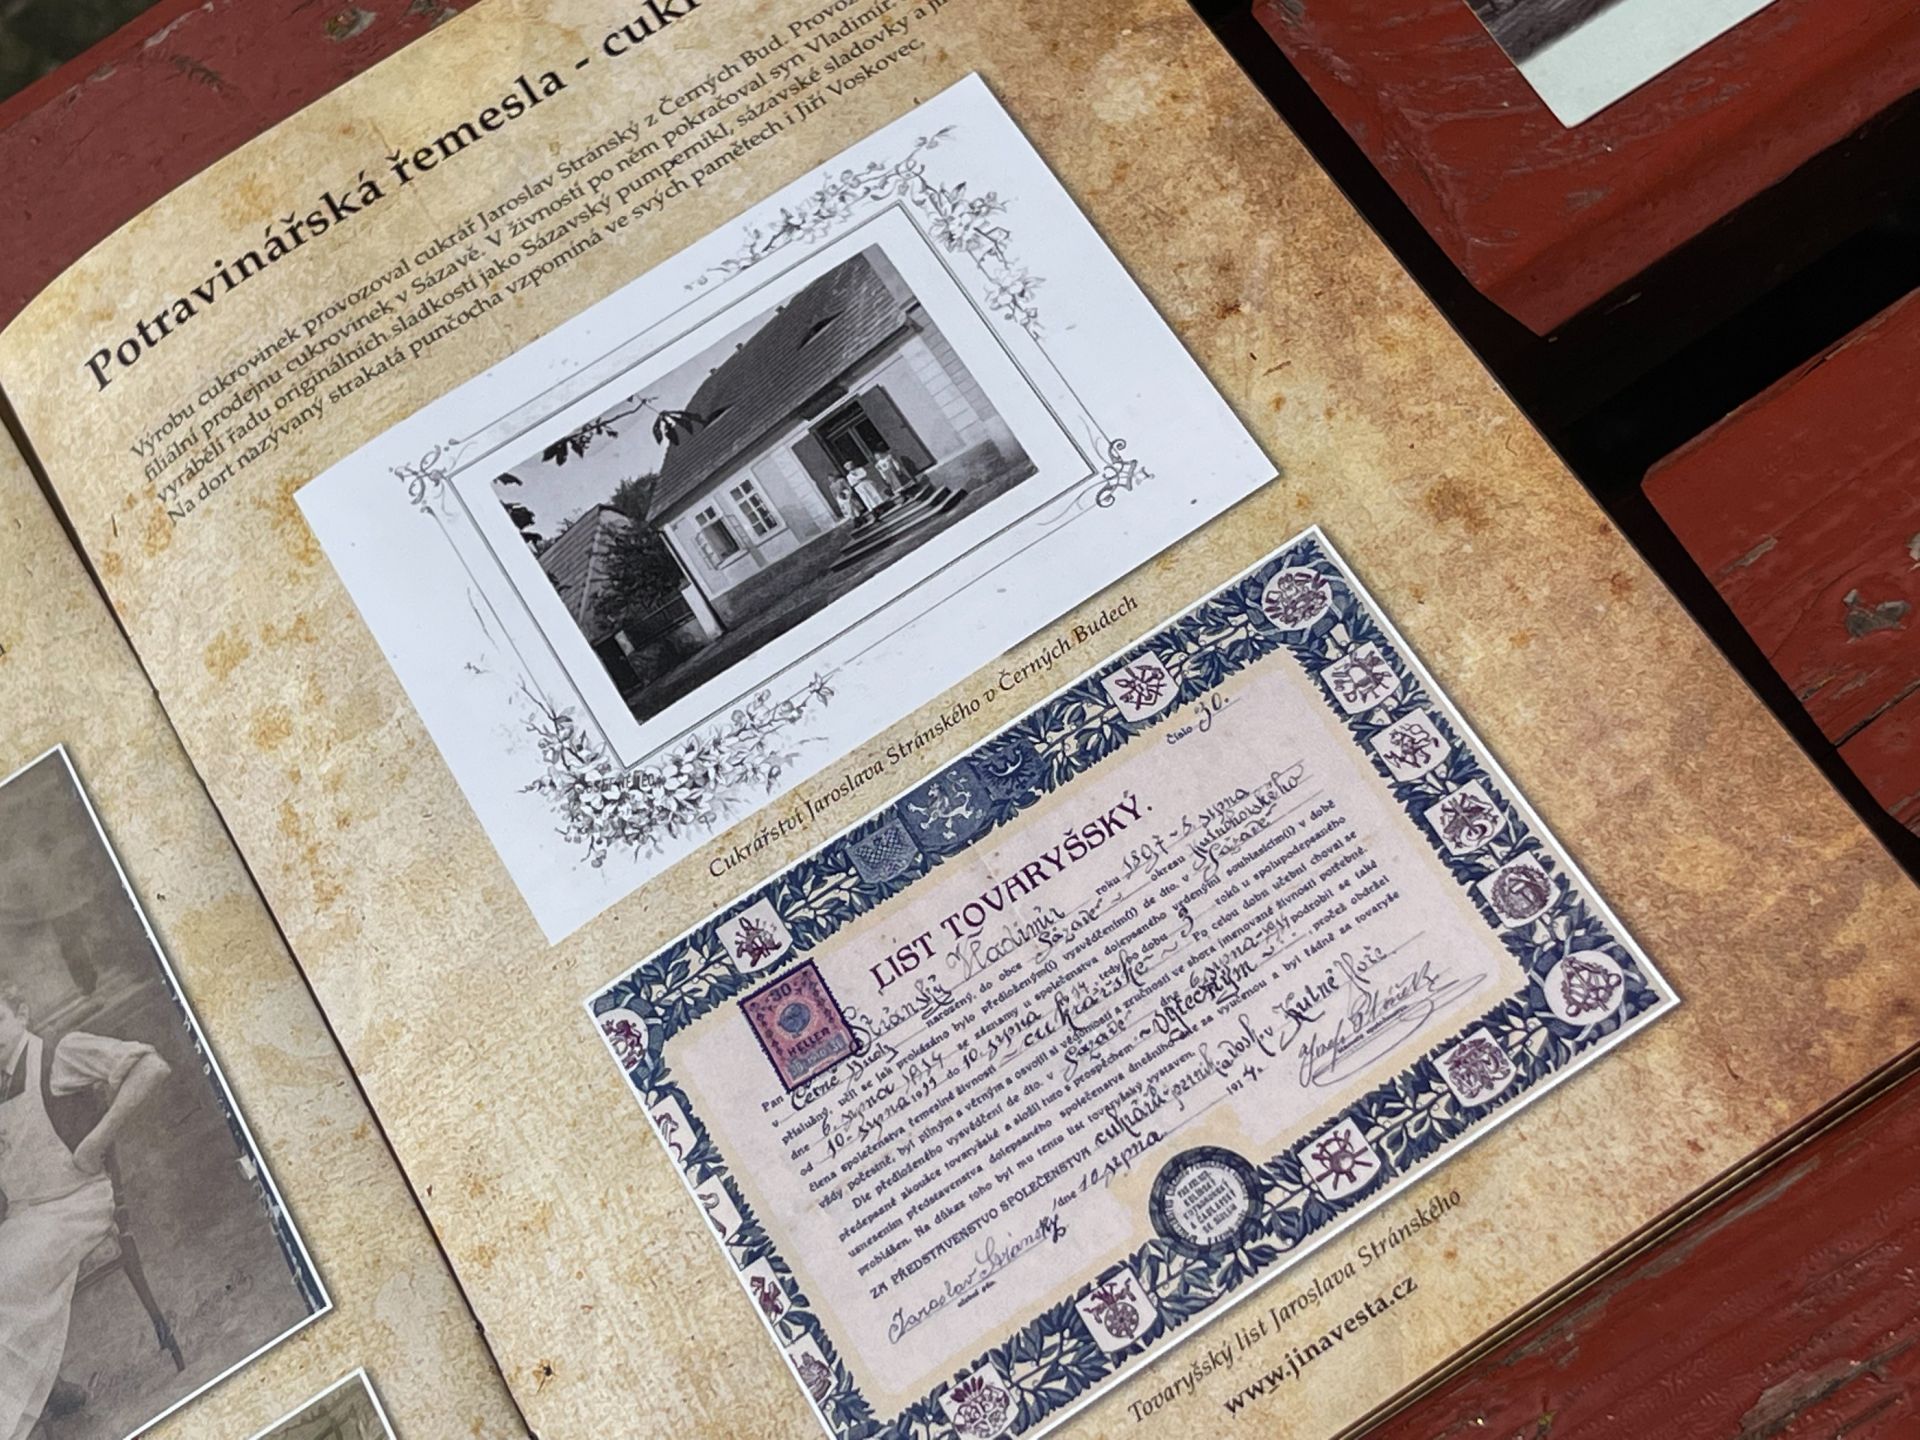 Potravinářská řemesla - cukr
Výrobu cukrovinek provozoval cukrář Jaroslav Stránský z Černých Bud. Provoz
filiální prodejnu cukrovinek v Sázavě. V živnosti po něm pokračoval syn Vladimír.
vyráběli řadu originálních sladkostí jako Sázavský pumpernikl, sázavské sladovky a ji
Na dort nazývaný strakatá punčocha vzpomíná ve svých pamětech i Jiří Voskovec,
Cukrářství Jaroslava Stránského v Černých Budech
Číslo 30.
LIST TOVARYŠSKÝ.
30
HELLER
Pan Stránský Vladimír roku 1897 - 5 srpna
v Černé Budy narozený, do obce Sázavě okresu
příslušný, učil se jak prokázáno bylo předloženým(i) vysvědčením(i) de dto. v Sázavě
dne 6. srpna 1914 se záznamy u společenstva dolepsaného vrdenými souhlasícím(i) v době
od 10. srpna 1911 do 10. srpna 1914 tedy po dobu 3 roků u spolupodepsaného
člena společenstva řemeslné živnosti cukrářské Po celou dobu učební choval se
vždy počestně, byl pilným a věrným a osvojil si vědomosti a zručnosti ve sbora jmenované živnosti potřebné.
Dle předloženého vysvědčení de dto. v Sázavě dne 6 srpna 1914 podrobil se také
předepsané zkoušce tovaryšské a složil tuto s prospěchem výtečným pročež obdržel
usnesením představenstva dolepsaného společenstva dnešního dne za vyučenou a byl řádně za tovaryše
prohlášen. Na důkaz toho byl mu tento list tovaryšský vystaven.
ZA PŘEDSTAVENSTVO SPOLEČENSTVA cukrářů v Kutné Hoře
dne 10 srpna 1914.
Jaroslav Stránský
Tovaryšský list Jaroslava Stránského
www.jinavesta.cz